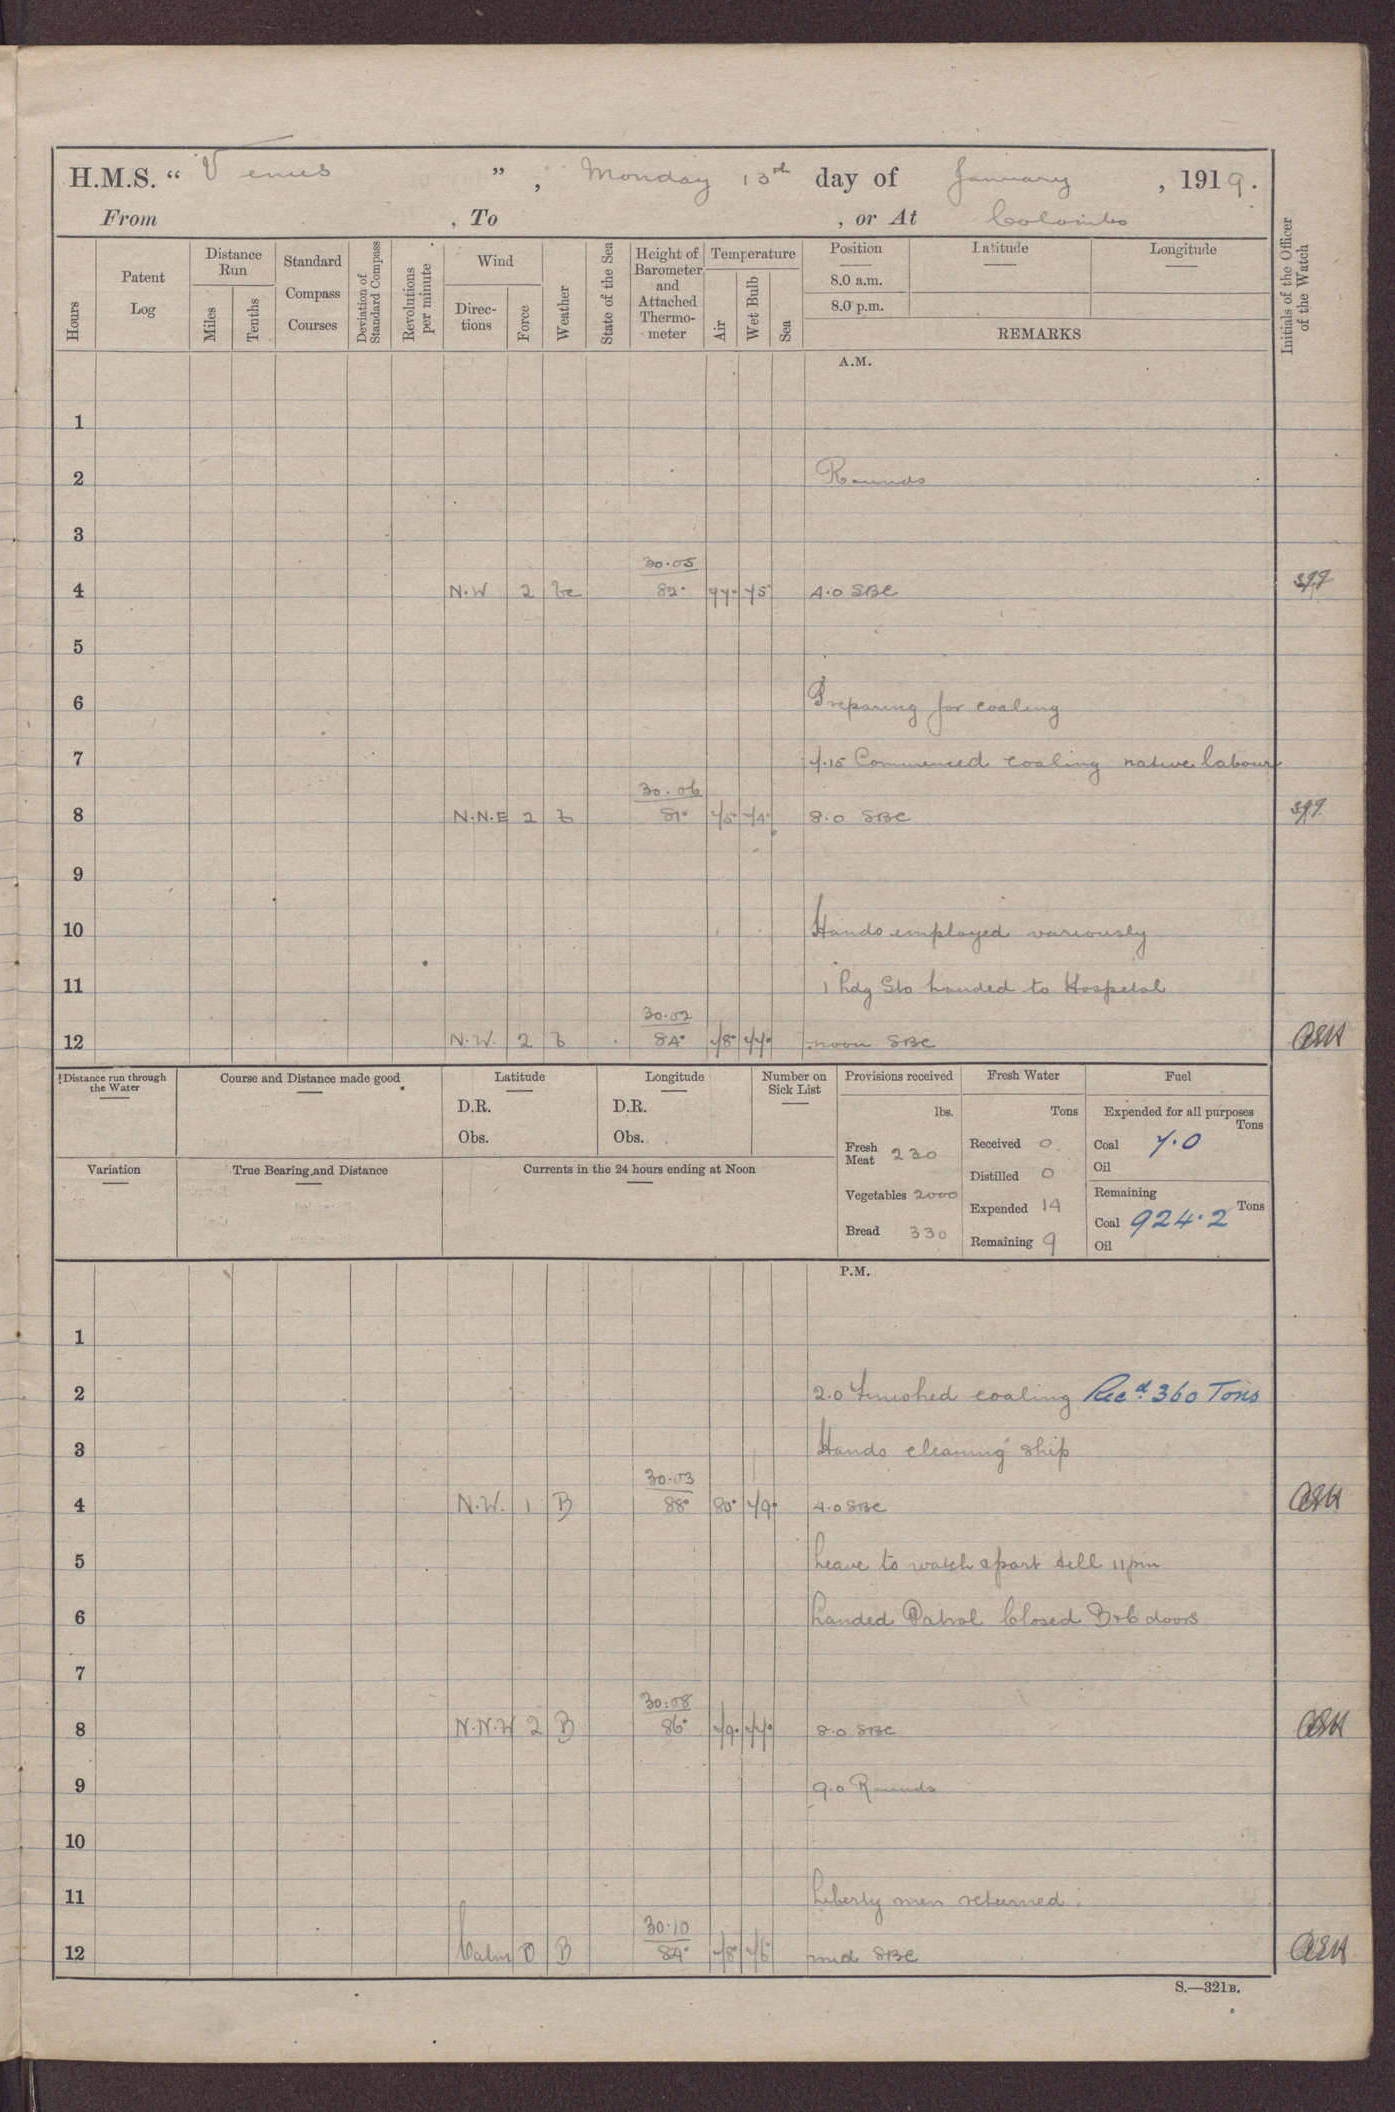 H.M.S. “ Venus ” , Monday 13th day of January , 1919.
From , To , or At Colombo
Hours
Patent Log
Distance Run
Miles
Tenths
Standard Compass Courses
Deviation of Standard Compass
Revolutions per minute
Wind
Directions
Force
Weather
State of the Sea
Height of Barometer and Attached Thermometer
Temperature
Air
Wet Bulb
Sea
Position Latitude Longitude
8.0 a.m.
8.0 p.m.
REMARKS
Initials of the Officer of the Watch
A.M.
1
2 Rounds
3
30.05
4 N.W 2 bc 82° 77° 75° 4.0 SBC
5
6 Preparing for coaling
7 7.15 Commenced coaling native labour
30.06
8 N.N.E 2 b 81° 75° 74° 8.0 SBC
9
10 Hands employed variously
11 1 Ldg Sto landed to Hospital
30.02
12 N.W. 2 b 84° 78° 77° noon SBC
Distance run through the Water
Course and Distance made good
Latitude
D.R.
Obs.
Longitude
D.R.
Obs.
Number on Sick List
Provisions received
lbs.
Fresh Meat 230
Vegetables 2000
Bread 330
Fresh Water
Tons
Received 0
Distilled 0
Expended 14
Remaining 9
Fuel
Expended for all purposes
Tons
Coal 7.0
Oil
Remaining
Tons
Coal 924.2
Oil
Variation
True Bearing and Distance
Currents in the 24 hours ending at Noon
P.M.
1
2 2.0 Finished coaling Recd. 360 Tons
3 Hands cleaning ship
30.03
4 N.W. 1 B 88° 80° 79° 4.0 SBC
5 Leave to watch & part till 11pm
6 Landed Patrol Closed B&C doors
7
30.08
8 N.N.W 2 B 86° 79° 77° 8.0 SBC
9 9.0 Rounds
10
11 Liberty men returned.
30.10
12 Calm 0 B 84° 78° 76° mid SBC
S.—321B.